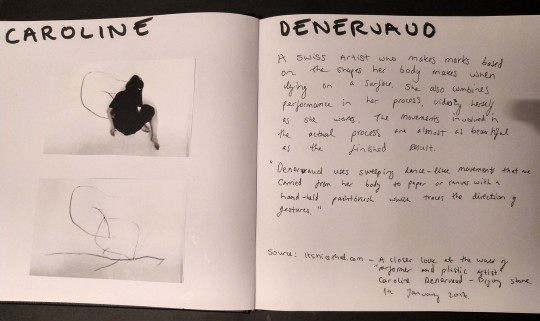 CAROLINE DENERVAUD
A SWISS Artist who makes marks based
on the shapes her body makes when
lying on a surface. She also combines
performance in her process, videoing herself
as she works. The movements involved in
the actual process are almost as beautiful
as the finished result.
"Denervaud uses sweeping dance-like movements that are
carried from her body to paper or canvas with a
hand-held paintbrush which traces the direction of
gestures."
Source: itsnicethat.com - A closer look at the work of
"performer and plastic artist
Caroline Denervaud - Bryony Stone
in January